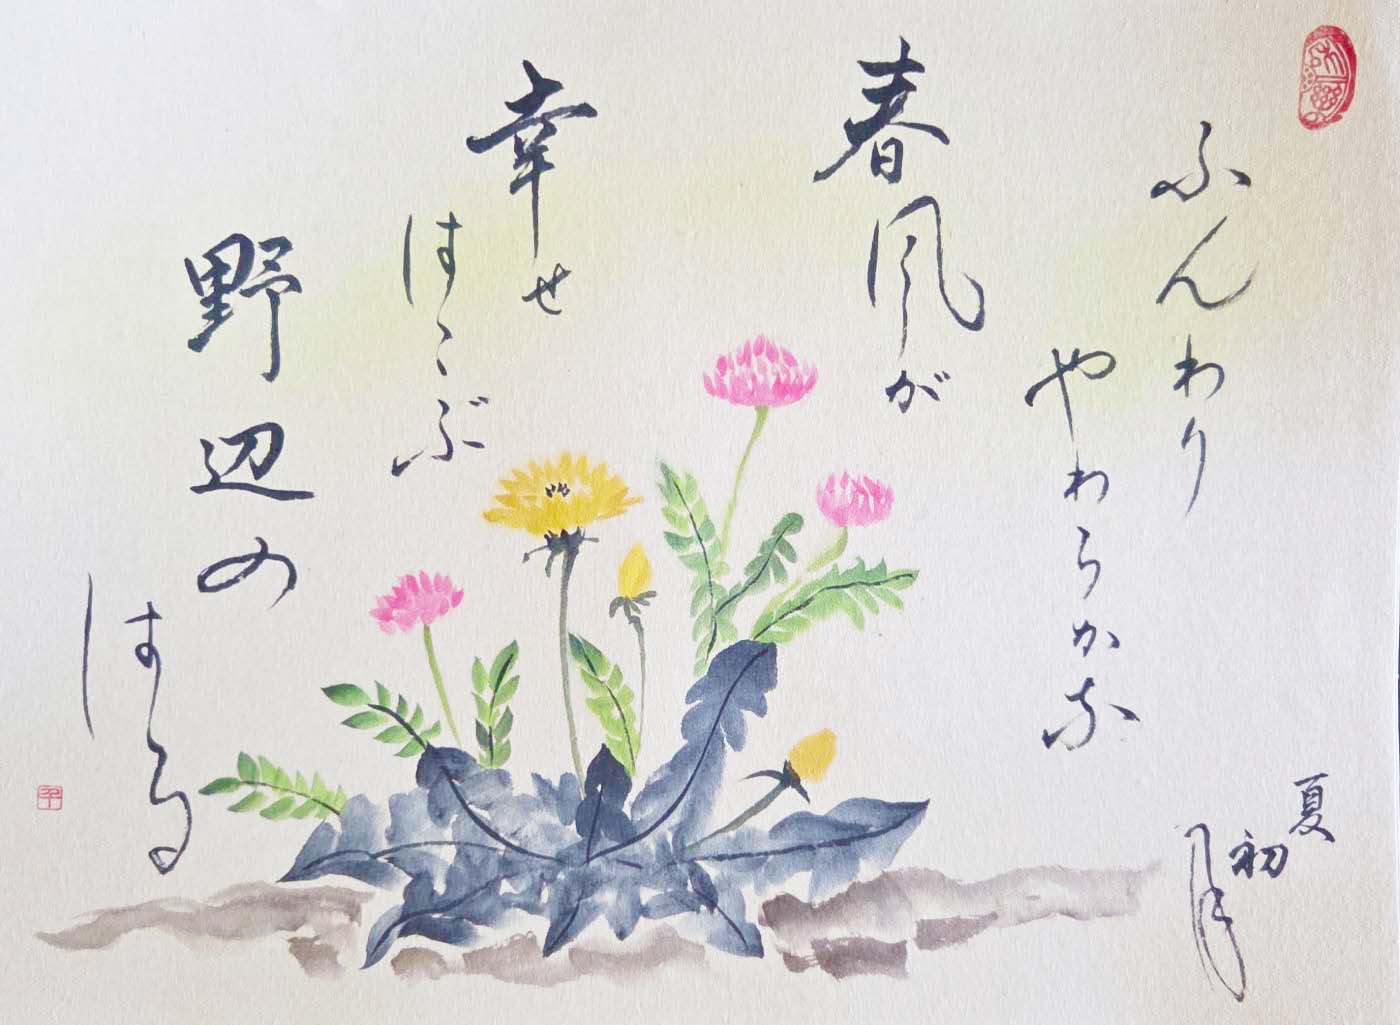 ふんわり
やわらかな
春風が
幸せ
はこぶ
野辺の
はる
夏
初
月